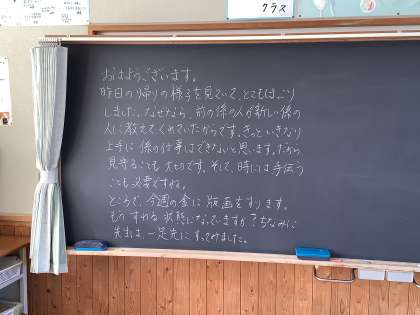 クラス
おはようございます。
昨日の帰りの様子を見ていて、とてもほっこり
しました。なぜなら、前の係の人が新しい係の
人に教えてくれていたからです。きっといきなり
上手に係の仕事はできないと思います。だから
見守ることも大切です。そして、時には手伝う
ことも必要ですね。
ところで、今週の金に版画をすります。
もうすれる状態になっていますか?ちなみに
先生は、一足先にすってみました。